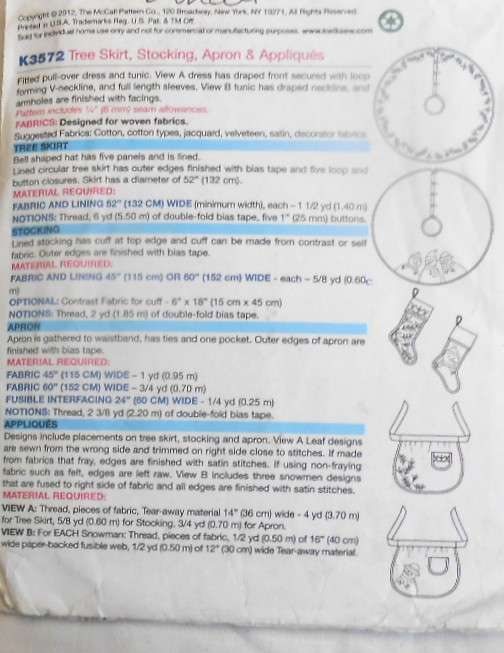 Copyright © 2012, The McCall Pattern Co., 120 Broadway, New York, NY 10271, All Rights Reserved.
Printed in U.S.A. Trademarks Reg. U.S. Pat. & TM Off.
Sold for individual home use only and not for commercial or manufacturing purposes. www.kwiksew.com
K3572 Tree Skirt, Stocking, Apron & Appliqués
Fitted pull-over dress and tunic. View A dress has draped front secured with loop
forming V-neckline, and full length sleeves. View B tunic has draped neckline, and
armholes are finished with facings.
Pattern includes ¼" (6 mm) seam allowances.
FABRICS: Designed for woven fabrics.
Suggested Fabrics: Cotton, cotton types, jacquard, velveteen, satin, decorator fabrics
TREE SKIRT
Bell shaped hat has five panels and is lined.
Lined circular tree skirt has outer edges finished with bias tape and five loop and
button closures. Skirt has a diameter of 52" (132 cm).
MATERIAL REQUIRED:
FABRIC AND LINING 52" (132 CM) WIDE (minimum width), each – 1 1/2 yd (1.40 m)
NOTIONS: Thread, 6 yd (5.50 m) of double-fold bias tape, five 1" (25 mm) buttons.
STOCKING
Lined stocking has cuff at top edge and cuff can be made from contrast or self
fabric. Outer edges are finished with bias tape.
MATERIAL REQUIRED:
FABRIC AND LINING 45" (115 cm) OR 60" (152 cm) WIDE - each – 5/8 yd (0.60
m)
OPTIONAL: Contrast Fabric for cuff - 6" x 18" (15 cm x 45 cm)
NOTIONS: Thread, 2 yd (1.85 m) of double-fold bias tape.
APRON
Apron is gathered to waistband, has ties and one pocket. Outer edges of apron are
finished with bias tape.
MATERIAL REQUIRED:
FABRIC 45" (115 CM) WIDE – 1 yd (0.95 m)
FABRIC 60" (152 CM) WIDE – 3/4 yd (0.70 m)
FUSIBLE INTERFACING 24" (60 CM) WIDE - 1/4 yd (0.25 m)
NOTIONS: Thread, 2 3/8 yd (2.20 m) of double-fold bias tape.
APPLIQUÉS
Designs include placements on tree skirt, stocking and apron. View A Leaf designs
are sewn from the wrong side and trimmed on right side close to stitches. If made
from fabrics that fray, edges are finished with satin stitches. If using non-fraying
fabric such as felt, edges are left raw. View B includes three snowmen designs
that are fused to right side of fabric and all edges are finished with satin stitches.
MATERIAL REQUIRED:
VIEW A: Thread, pieces of fabric, Tear-away material 14" (36 cm) wide - 4 yd (3.70 m)
for Tree Skirt, 5/8 yd (0.60 m) for Stocking, 3/4 yd (0.70 m) for Apron.
VIEW B: For EACH Snowman: Thread, pieces of fabric, 1/2 yd (0.50 m) of 16" (40 cm)
wide paper-backed fusible web, 1/2 yd (0.50 m) of 12" (30 cm) wide Tear-away material.